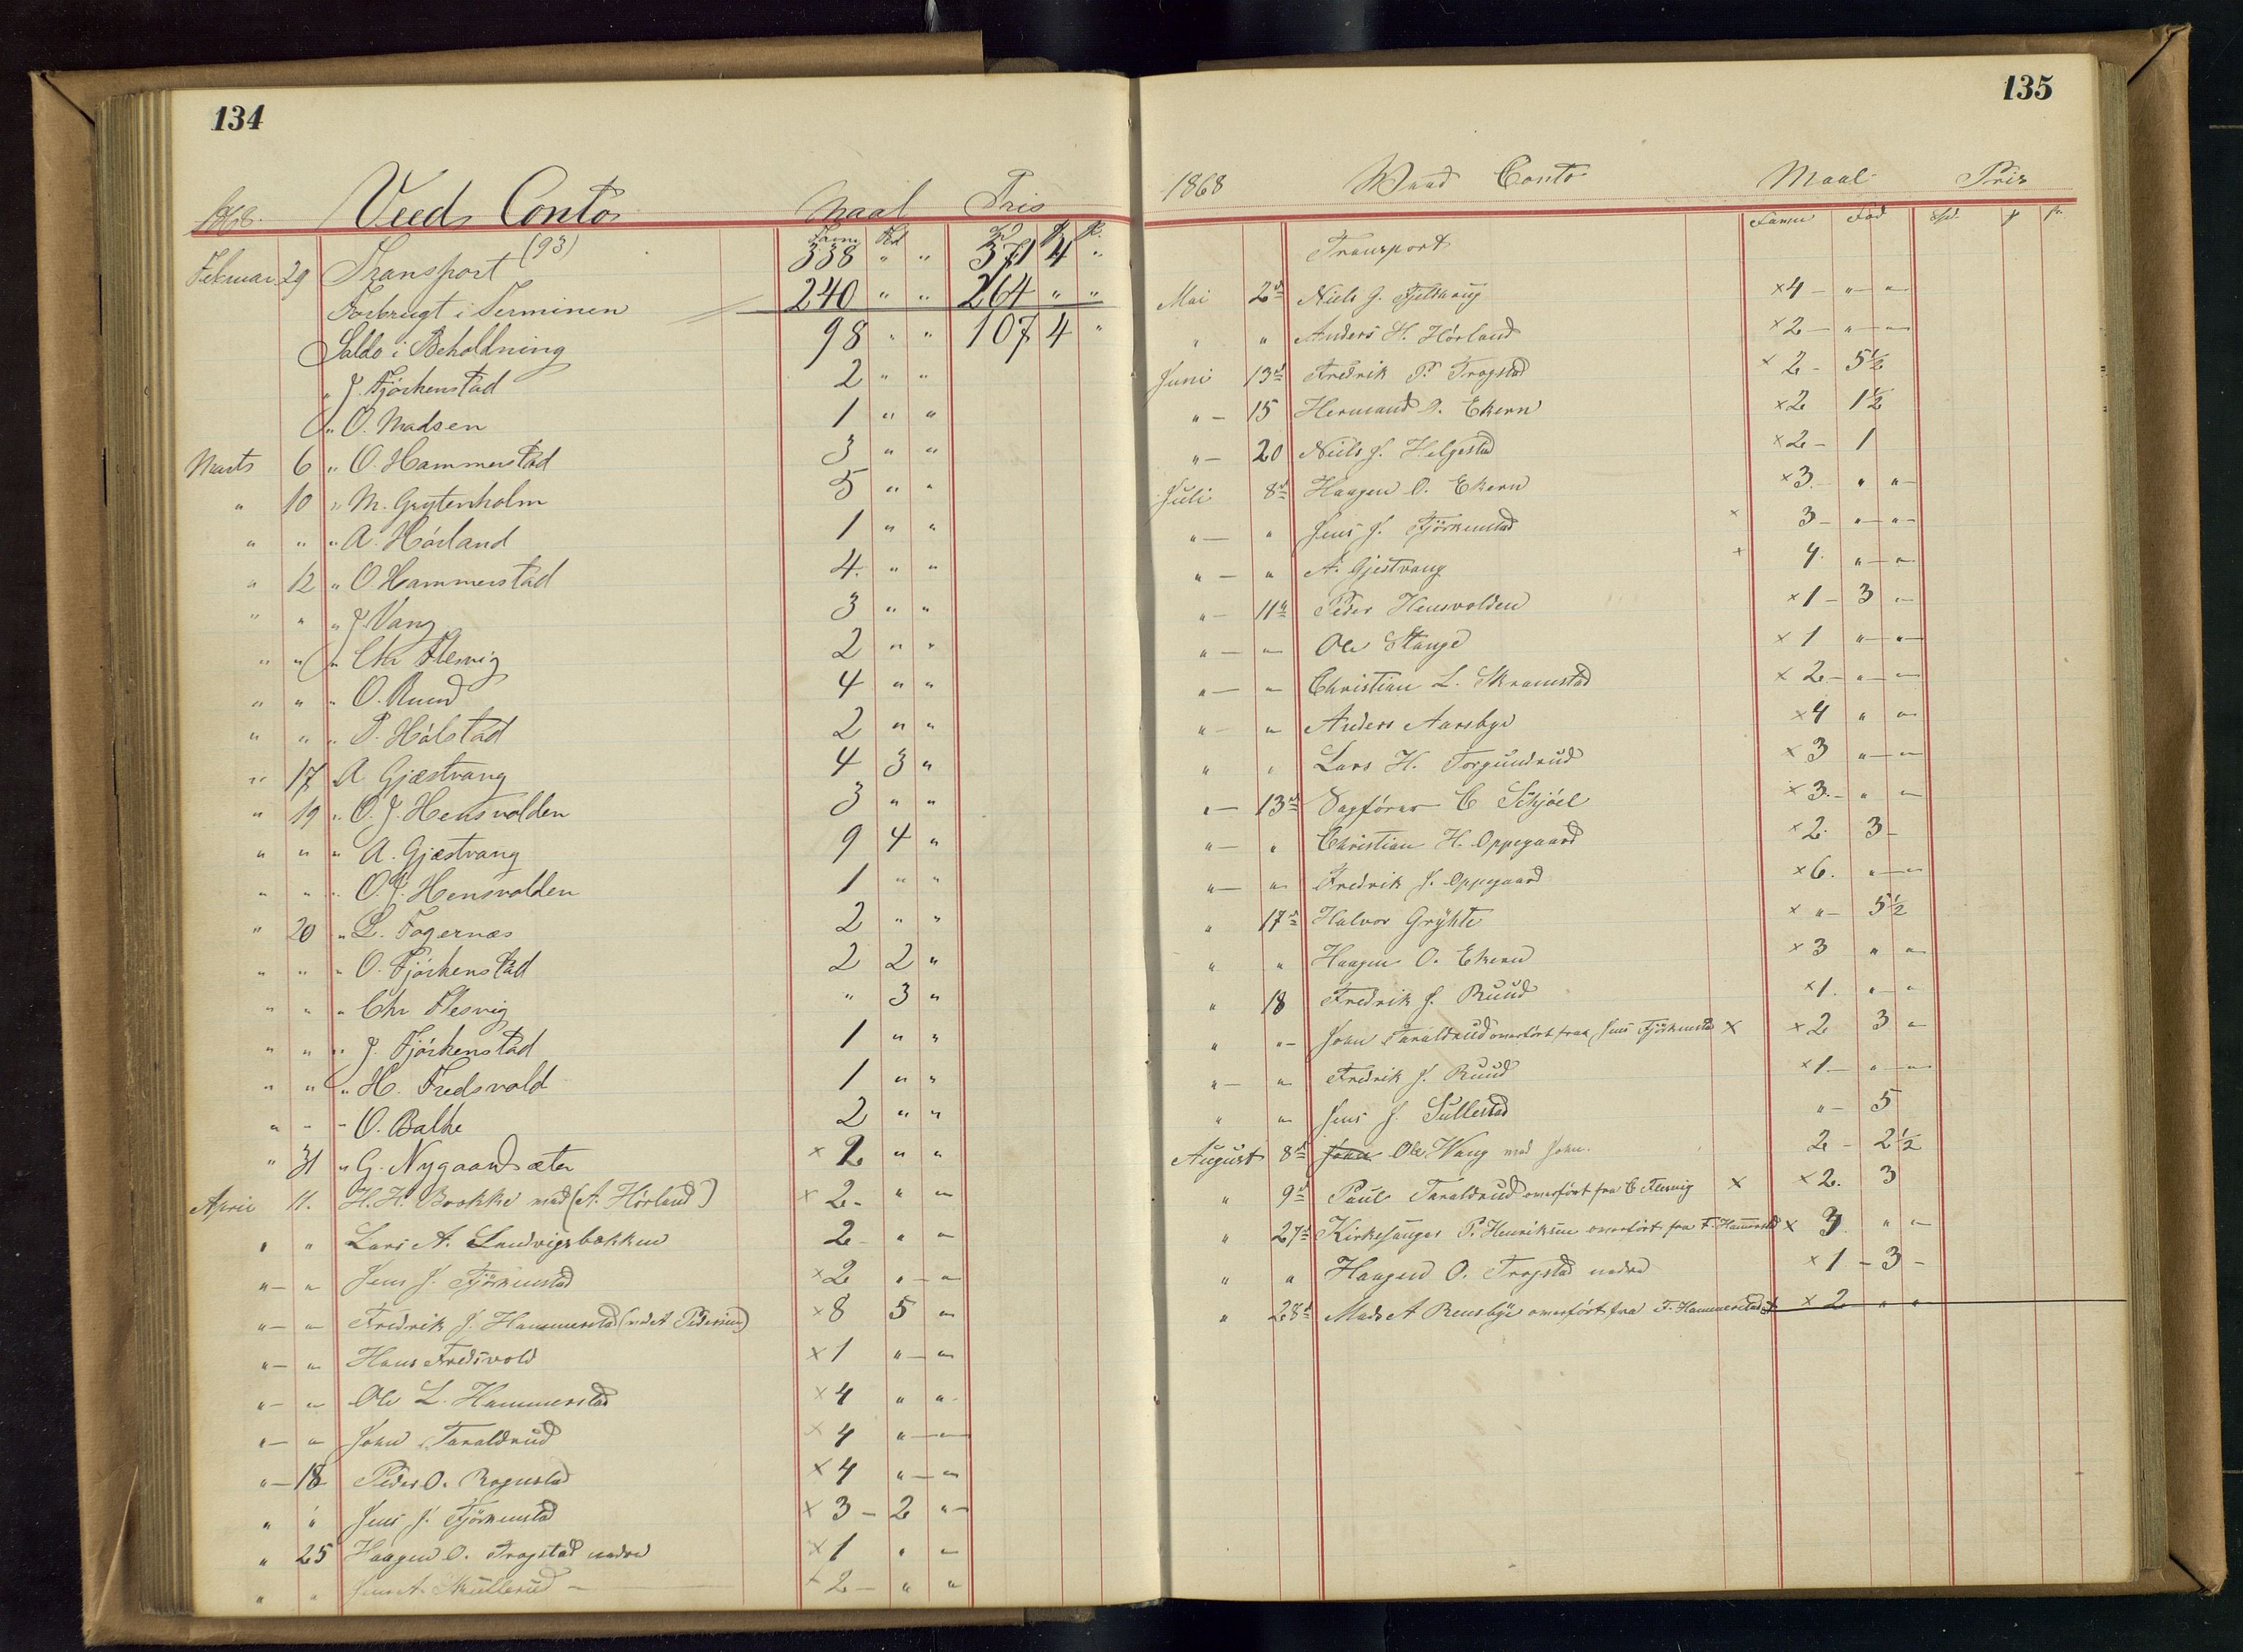 134
1868. Veeds Conto Maal Pris
Favne Fod Spd ₰ s.
Februar 29 Transport (93) 338 " " 371 4 "
Forbrugt i Terminen 240 " " 264 " "
Saldo i Beholdning 98 " " 107 4 "
" J. Fjørkenstad 2 " "
" O. Madsen 1 " "
Marts 6 " O. Hammerstad 3 " "
" 10 " M. Grytenholm 5 " "
" " " A. Hørland 1 " "
" 12 " O. Hammerstad 4. " "
" " " J. Vang 3 " "
" " " Chr Flesvig 2 " "
" " " O. Ruud 4 " "
" " " P. Hølstad 2 " "
" 17 " A Gjæstvang 4 3 "
" 19 " O. J. Hensvolden 3 " "
" " " A. Gjæstvang 9 4 "
" " " O. J. Hensvolden 1 " "
" 20 " L. Fagernæs 2 " "
" " " O. Fjørkenstad 2 2 "
" " " Chr Flesvig " 3 "
" " " J. Fjørkenstad 1 " "
" " " H. Fredsvold 1 " "
" " " O. Balke 2 " "
" 31 " G. Nygaardsæter × 2 " "
April 11. H. H. Brokke med (A. Hørland) × 2- " "
" " Lars A. Landvigsbakken 2 - " "
" " Jens J. Fjørkenstad × 2 " "
" " Fredrik J. Hammerstad (ved A Pedersen) × 8 5 "
" " Hans Fredsvold × 1 " "
" " Ole L. Hammerstad × 4 " "
" " John Taraldrud × 4 " "
" 18 Peder O. Rognstad × 4 " "
" " Jens J. Fjørkenstad × 3 - 2 "
" 25 Haagen O. Trogstad nedre × 1 " "
" " Jens A. Skullerud × 2 - " "
135
1868 Weed Conto Maal Pris
Favne Fod Spd. ₰ s.
Transport
Mai 2d Niels J. Fjeldhaug × 4 - " "
" " Anders H. Hørland × 2 - " "
Juni 13d Fredrik P. Trogstad × 2 - 5½
" 15 Hermand O. Ekern × 2 1½
" 20 Niels J. Helgestad × 2 - 1
Juli 8d Haagen O. Ekern × 3. " "
" " Jens J. Fjørkenstad × 3 - " "
" " A. Gjestvang × 4. " "
" 11d Peder Hensvolden × 1 - 3 "
" " Ole Stange × 1 " "
" " Christian L. Skramstad × 2 - " "
" " Anders Aarsbye × 4 " "
" " Lars H. Torgundrud × 3 " "
" 13d Sagfører C Schjöel × 3. - " "
" " Christian H. Oppegaard × 2. 3 -
" " Fredrik J. Oppegaard × 6. " "
" 17d Halvor Grÿhte × " - 5½
" " Haagen O. Ekern × 3 " "
" 18 Fredrik J. Ruud × 1. " "
" " John Taraldrud overført fra Jens Fjørkenstad × × 2 3 "
" " Fredrik J. Ruud × 1 - " "
" " Jens J. Sullestad " - 5
August 8d John Ole Wang med John. 2 - 2½
" 9d Paul Taraldrud overført fra C Flesvig × × 2. 3
" 27d Kirkesanger P. Henriksen overført fra F. Hammerstad × 3 " "
" " Haagen O. Trogstad nedre × 1 - 3 -
" 28d Mads A Rensbye overført fra F. Hammerstad × × 2 " "